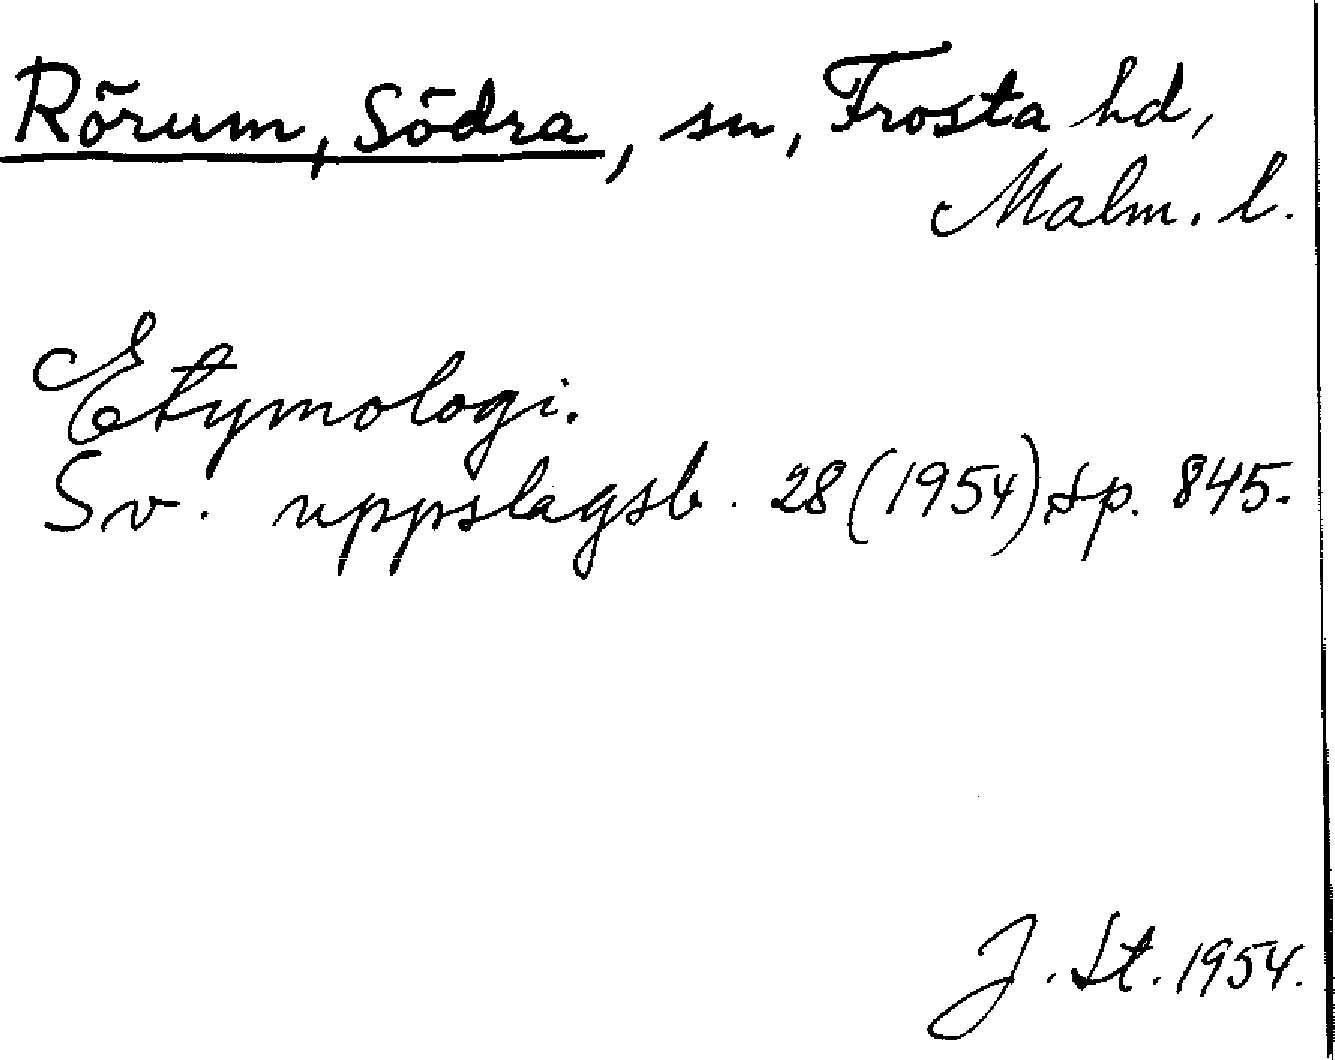 Rörum, Södra, sn, Frosta hd,
Malm. l.
Etymologi.
Sv. uppslagsb. 28 (1954) sp. 845.
J. St. 1954.